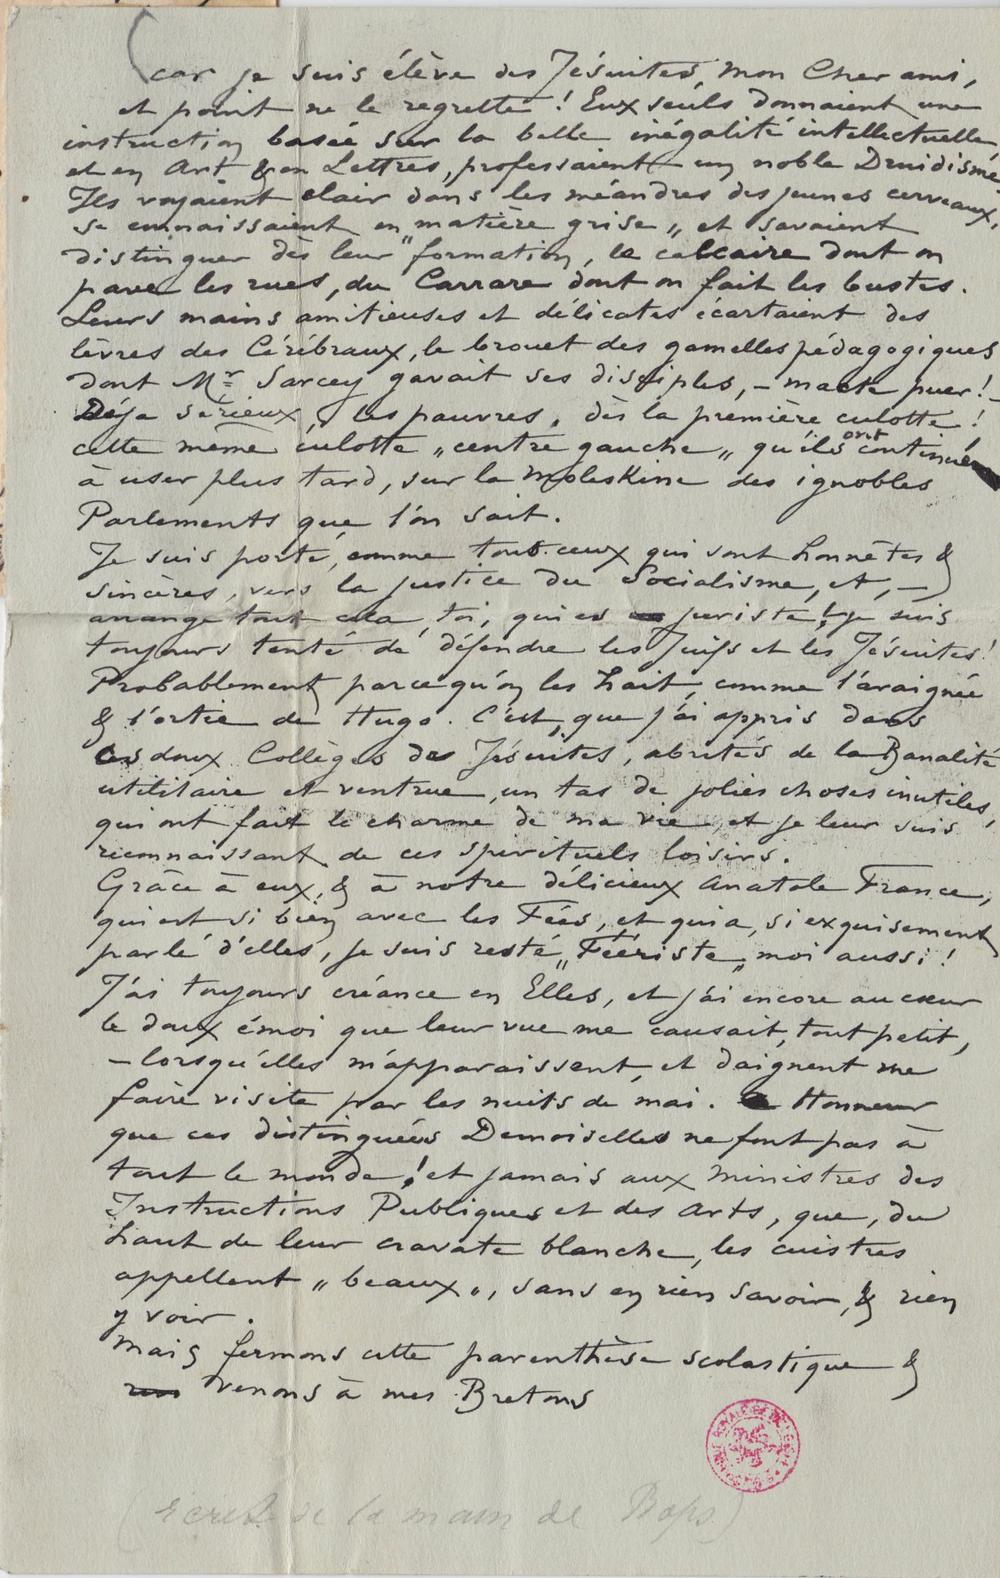 (car je suis élève des Jésuites, mon Cher ami,
et point ne le regrette ! Eux seuls donnaient une
instruction basée sur la belle inégalité intellectuelle
et en Art & en Lettres, professaient un noble Druidisme
Ils voyaient clair dans les méandres des jeunes cerveaux,
se connaissaient en "matière grise" et savaient
distinguer dès leur formation, le calcaire dont on
pave les rues, du Carrare dont on fait les bustes.
Leurs mains amitieuses et délicates écartaient des
lèvres des Cérébraux, le brouet des gamelles pédagogiques
dont Mr Sarcey gavait ses disciples, – macte puer ! –
Déja sérieux, les pauvres, dès la première culotte !
cette meme culotte „centre gauche„ qu'ils ont continué
à user plus tard, sur la moleskine des ignobles
Parlements que l'on sait.
Je suis porté, comme tous ceux qui sont honnêtes &
sincères, vers la justice du Socialisme, et, –
arrange tout cela, toi, qui es juriste ! je suis
toujours tenté de défendre les Juifs et les Jésuites !
Probablement parce qu'on les hait, comme l'araignée
& l'ortie de Hugo. C'est, que j'ai appris dans
ces doux Collèges des Jésuites, abrités de la Banalité
utilitaire et ventrue, un tas de jolies choses inutiles,
qui ont fait le charme de ma vie, et je leur suis
reconnaissant de ces spirituels loisirs.
Grâce à eux, & à notre délicieux Anatole France,
qui est si bien avec les Fées, et qui a, si exquisement
parlé d'elles, je suis resté „Féériste„ moi aussi !
J'ai toujours créance en Elles, et j'ai encore au cœur
le doux émoi que leur vue me causait, tout petit,
– lorsqu'elles m'apparaissent, et daignent me
faire visite par les nuits de mai. Honneur
que ces distinguées Demoiselles ne font pas à
tout le monde ! et jamais aux ministres des
Instructions Publiques et des Arts, que, du
haut de leur cravate blanche, les cuistres
appellent „beaux„, sans en rien savoir, & rien
y voir.
Mais fermons cette parenthèse scolastique &
venons à mes Bretons
(écrit de la main de Rops)